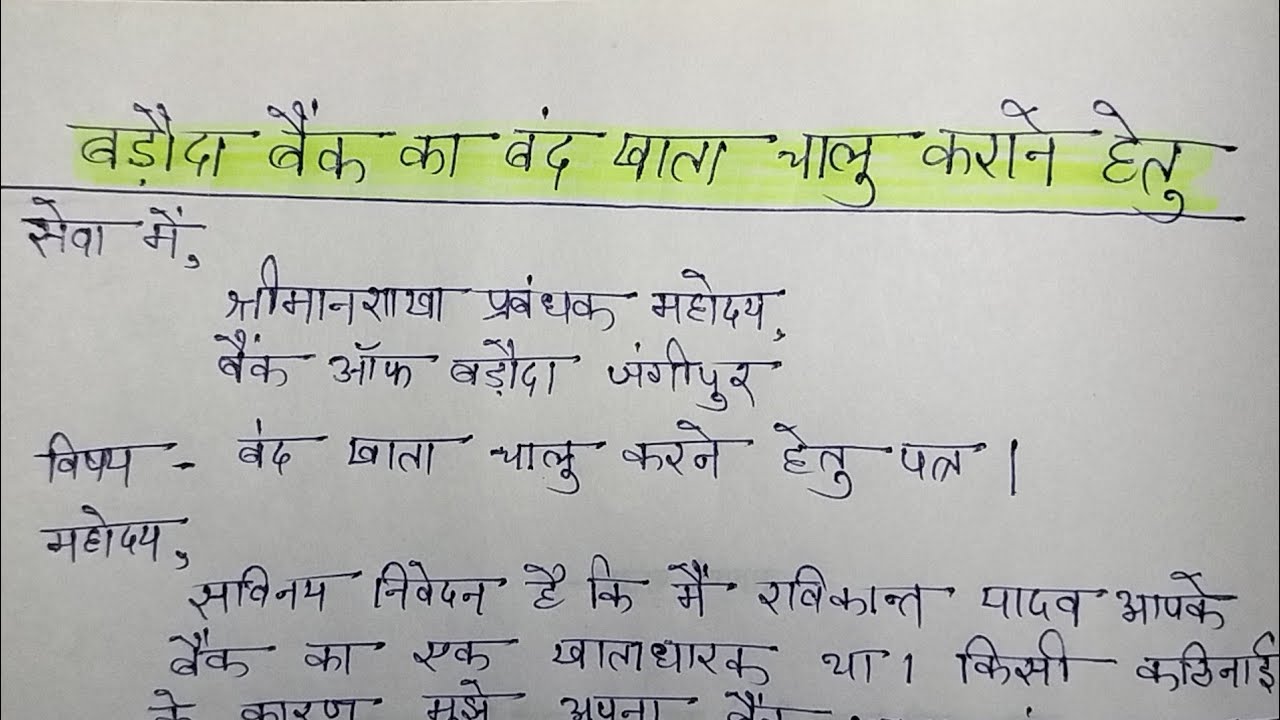 बड़ौदा बैंक का बंद खाता चालु कराने हेतु
सेवा में,
श्रीमान शाखा प्रबंधक महोदय,
बैंक ऑफ बड़ौदा जंगीपुर
विषय - बंद खाता चालु करने हेतु पत्र ।
महोदय,
सविनय निवेदन है कि मैं रविकान्त यादव आपके
बैंक का एक खाताधारक था । किसी कठिनाई
के कारण मुझे अपना बैंक